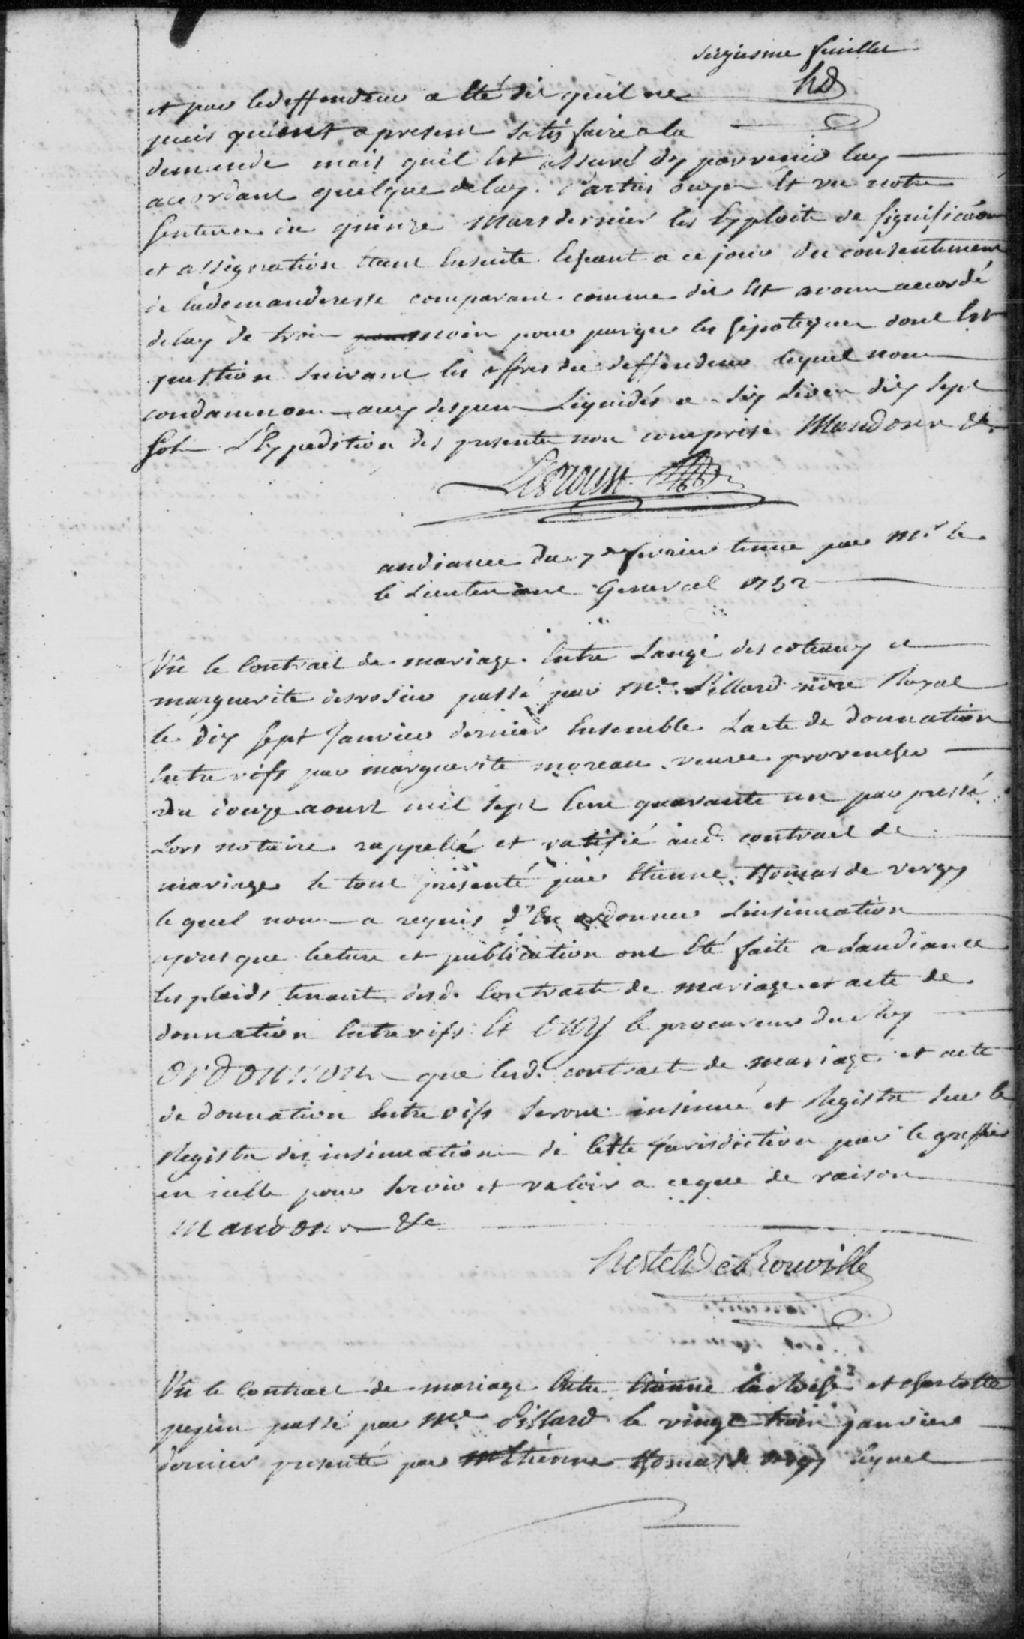 sixiesme feuillet
hd
et par led. deffendeur a été dit quil ne
peut quant a present satisfaire a la
demande mais quil Est assuré dy parvenir luy
accordant quelque delay. Parties ouyes Et vu notre
sentence du quinze Mars dernier les Exploits de signification
et assignation Etant Ensuite Echeant a ce jour du consentement
de lademanderesse comparant comme dit Est avons accordé
delay de trois mois pour purger les hipoteques dont Est
question suivant les offres du deffendeur lequel nous
condamnons aux depens Liquidés a dix Livres dix sept
sols L'Expedition des presentes non comprise Mandons &c
audiance du 7e fevrier tenue par Mr le
le Lieutenant General 1752
Vû le Contrait de mariage Entre Langé des coteaux et
marguerite desrosier passé par Me. Pillard nore Royal
le dix sept Janvier dernier Ensemble Lacte de donnation
Entre vifs par marguerite moreau veuve provencher
du douze aoust mil sept Cent quarante un par pressé
Lors notaire rappellé et ratifié aud. contrait de
mariage le tout présenté par Etienne thomas de vergy
lequel nous a requis d'En ordonner Linsinuation
apres que lecture et publication ont Eté faite a Laudiance
les plaids tenant desd. Contracts de mariage et acte de
donnation Entre vifs Et OUY le procureur du Roy
ORDONNONS que lesd. contract de mariage et acte
de donnation Entre vifs seront insinué et Registré sur le
Registre des insinuations de Cette Jurisdiction par le greffier
en icelle pour servir et valoir a ceque de raison
Mandons &c
hertel De Rouville
Vû le Contract de mariage Entre Etienne et charlotte
pepin passé par Me. Pillard le vingt trois janvier
dernier presenté par Etienne thomas de vergy lequel